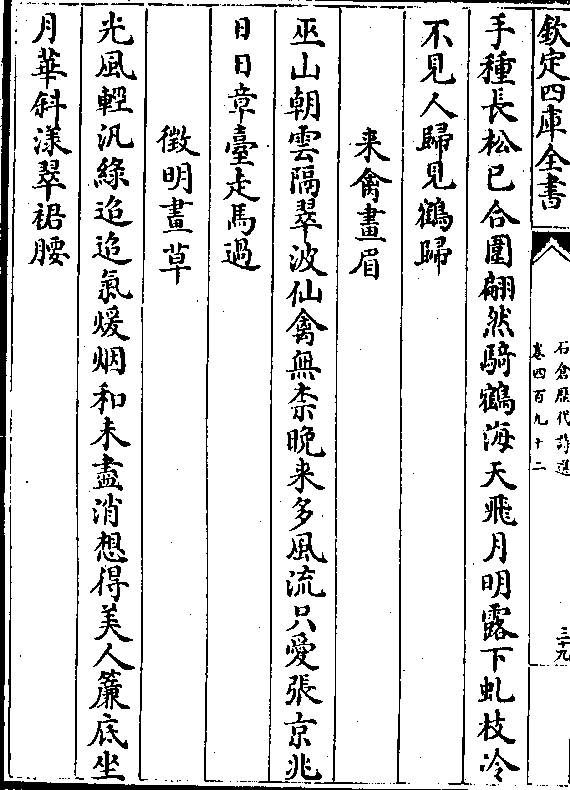 欽定四庫全書
石倉歷代詩選
卷四百九十二
三十九
手種長松已合圍翩然騎鶴海天飛月明露下虬枝冷
不見人歸見鶴歸
来禽畫眉
巫山朝雲隔翠波仙禽無柰晚来多風流只愛張京兆
日日章臺走馬過
徴明畫草
光風輕汎綠迢迢氣煖烟和未盡消想得美人簾底坐
月華斜漾翠裙腰